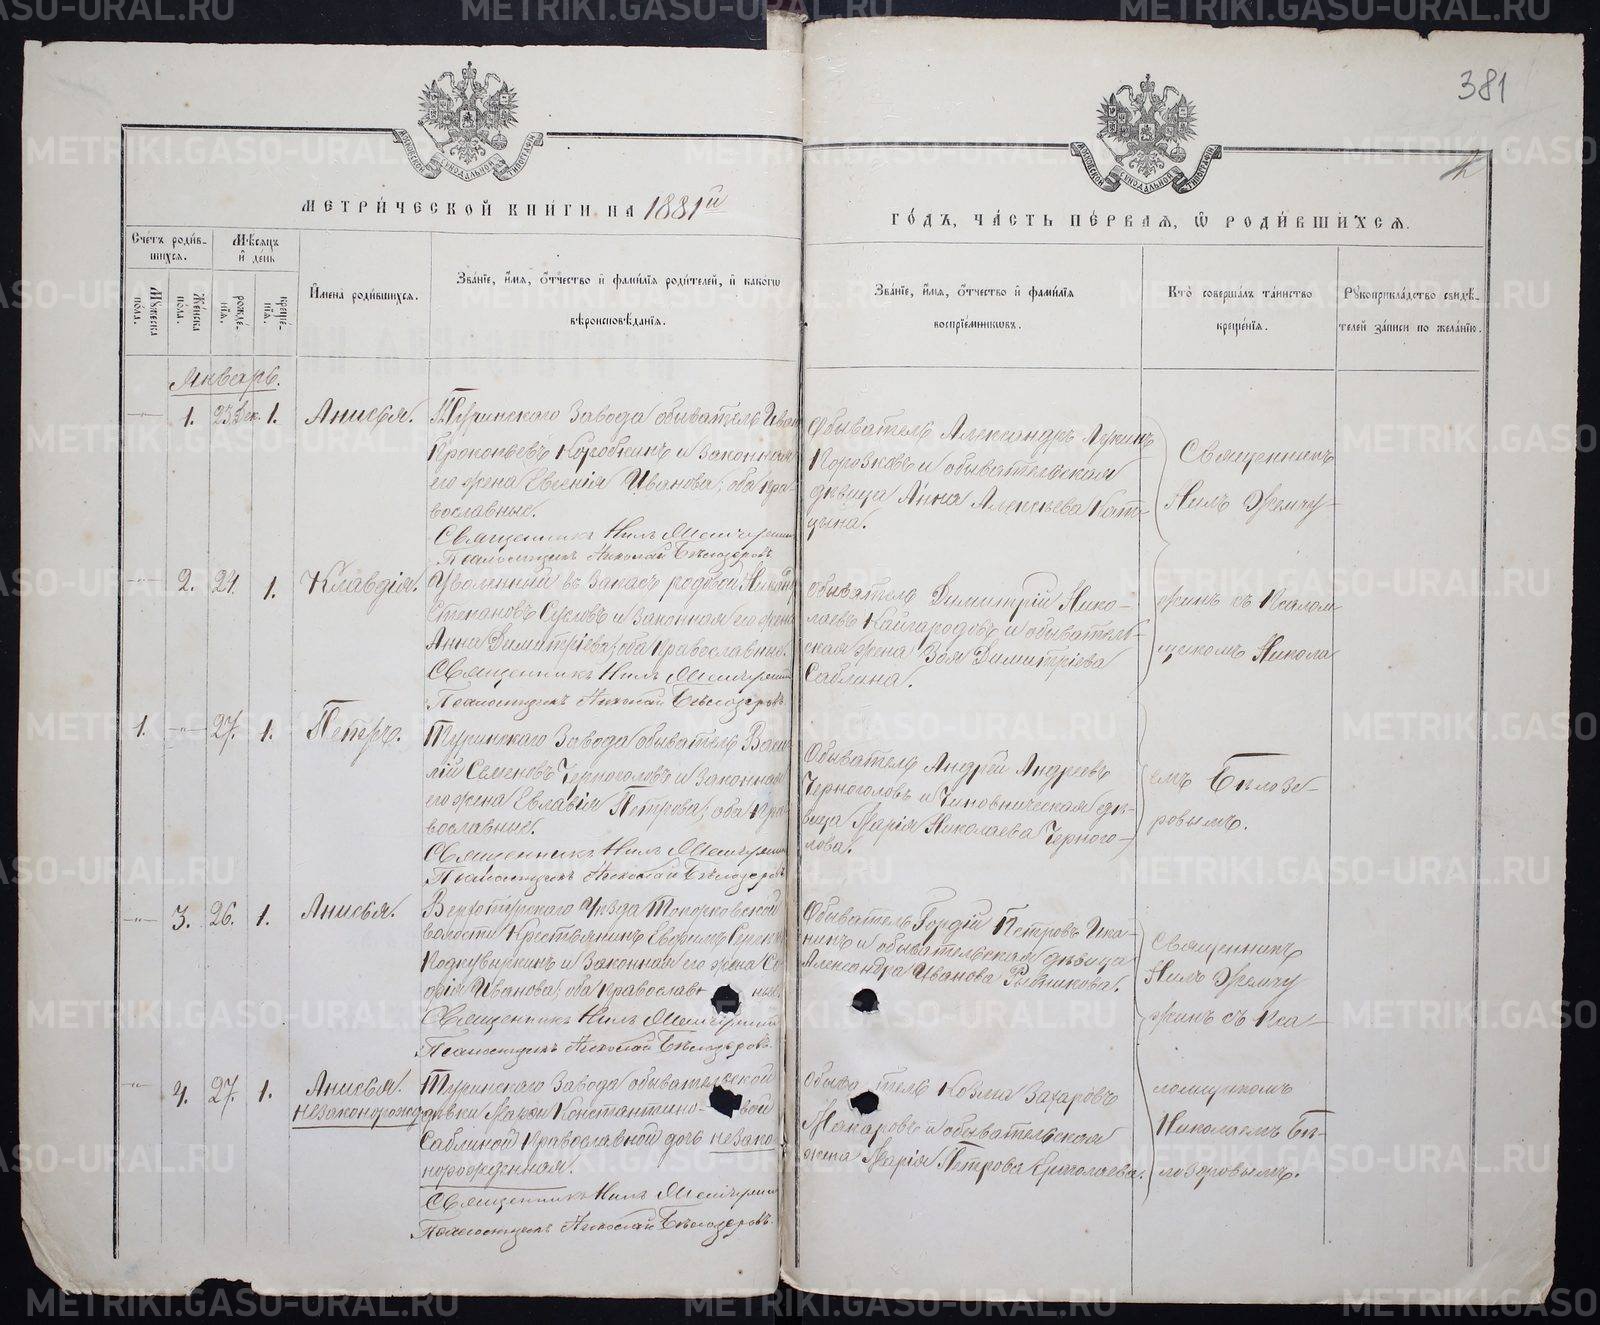 381
МЕТРИ́ЧЕСКОЙ КНИ́ГИ НА 1881й
ГО́ДЪ, ЧА́СТЬ ПЕ́РВАѦ, Ѡ҆ РОДИ́ВШИХСѦ.
Сче́тъ роди́в-
шихсѧ.
Мꙋ́жеска по́ла.
Же́нска по́ла.
Мѣ́сѧцъ и҆ де́нь
рожде́-нїѧ.
креще́-нїѧ.
И҆мена̀ роди́вшихсѧ.
Зва́нїе, и҆́мѧ, ѻ҆́тчество и҆ фами́лїѧ роди́телей, и҆ како́гѡ
вѣроисповѣ́данїѧ.
Зва́нїе, и҆́мѧ, ѻ҆́тчество и҆ фами́лїѧ
воспрїе́мникѡвъ.
Кто̀ соверша́лъ та́инство
креще́нїѧ.
Рꙋкоприкла́дство свидѣ́-
телей за́писи по жела́нїю.
Январь.
1. 23 Дек. 1. Анисья.
Н. Туринскаго Завода обыватель Иван
Прокопьевъ Коробкинъ и законная
его жена Евгенія Иванова, оба пра-
вославные.
Священникъ Нилъ
Псаломщикъ Николай Бѣлозеровъ
Обыватель Александръ Лукинъ
и обывательская
дѣвица Анна Алексѣева
Священникъ
Нилъ
2. 24. 1. Клавдія.
Уволенный въ запасъ рядовой
Степановъ Сусловъ и законная его жена
Анна Димитріева, оба православные.
Священникъ Нилъ
Псаломщикъ Николай Бѣлозеровъ
Обыватель Димитрій Нико-
лаевъ Кайгородовъ и обыватель-
ская жена Зоя Димитріева
Саблина.
жинъ съ Псалом
щикомъ Никола
1. 27. 1. Петръ.
Туринскаго Завода обыватель Васи
лій Семеновъ Черноголовъ и законная
его жена Евлавія Петрова, оба пра
вославные.
Священникъ Нилъ
Псаломщикъ Николай Бѣлозеровъ
Обыватель Андрей Андреевъ
Черноголовъ и Чиновническая дѣ-
вица Марія Николаева Черного-
лова.
емъ Бѣлозе-
ровымъ.
3. 26. 1. Анисья.
Верхотурскаго Уѣзда Топорковской
волости Крестьянинъ Евфимъ
Подкувыркинъ и законная его жена Со
фія Иванова, оба православные.
Священникъ Нилъ
Псаломщикъ Николай Бѣлозеровъ
Обыватель Гордій Петровъ Ика-
нинъ и обывательская дѣвица
Александра Иванова Рыбникова.
Священникъ
Нилъ
жинъ съ Пса-
4. 27. 1. Анисья.
незаконорожд
Туринскаго Завода обывательской
дѣвки Константиновой
Саблиной Православной дочь незако
норожденная.
Священникъ Нилъ
Псаломщикъ Николай Бѣлозеровъ.
Обыватель Козма Захаровъ
Макаровъ и обывательская
жена Марія Петрова Ермолаева.
ломщикомъ
Николаемъ Бѣ-
лозеровымъ.